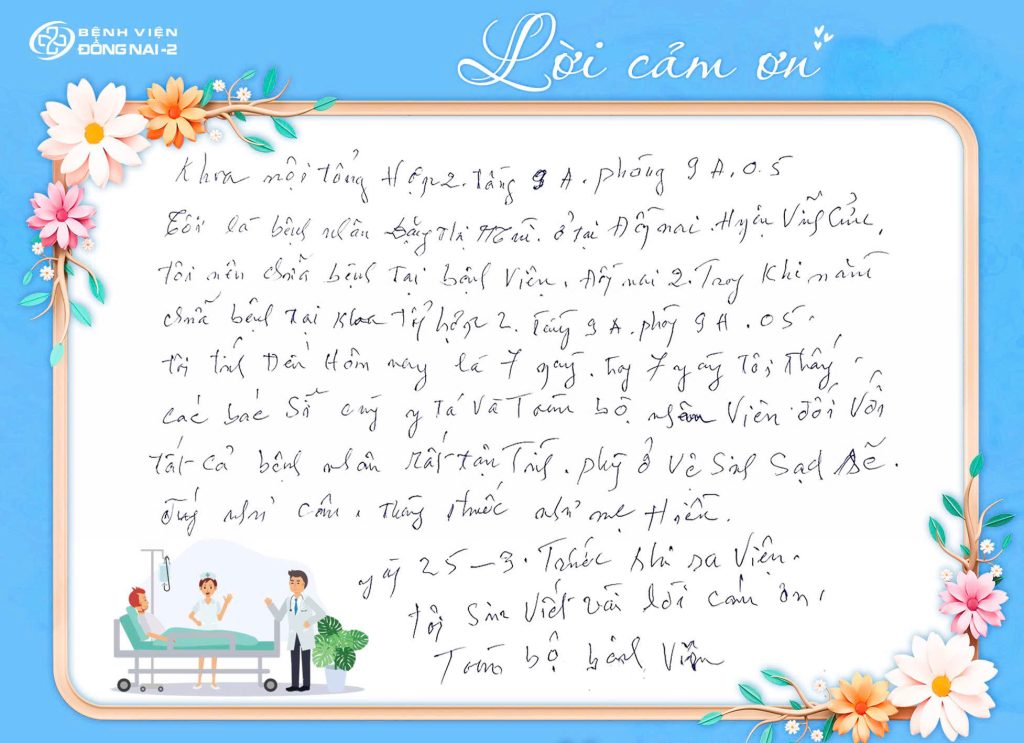 BỆNH VIỆN
ĐỒNG NAI-2
Lời cảm ơn
Khoa nội tổng Hợp 2. Tầng 9 A. phòng 9 A.05
Tôi là bệnh nhân Đặng thị ở tại Đồng nai. Huyện Vĩnh Cửu,
tôi nên chữa bệnh tại bệnh Viện. Đồng nai 2. Trong Khi nằm
chữa bệnh tại Khoa Tổng hợp 2. Tầng 9 A. phòng 9 A.05.
tôi tính Đến Hôm nay là 7 ngày. Trong 7 ngày Tôi thấy
các bác Sĩ cùng y tá Và Toàn bộ nhân Viên đối Với
tất cả bệnh nhân Rất tận Tình. phòng ở Vệ Sinh Sạch Sẽ.
đúng như câu, thầy thuốc như mẹ Hiền.
ngày 25-3. Trước khi ra Viện.
tôi Sin Viết vài lời cảm ơn,
Toàn bộ bệnh Viện